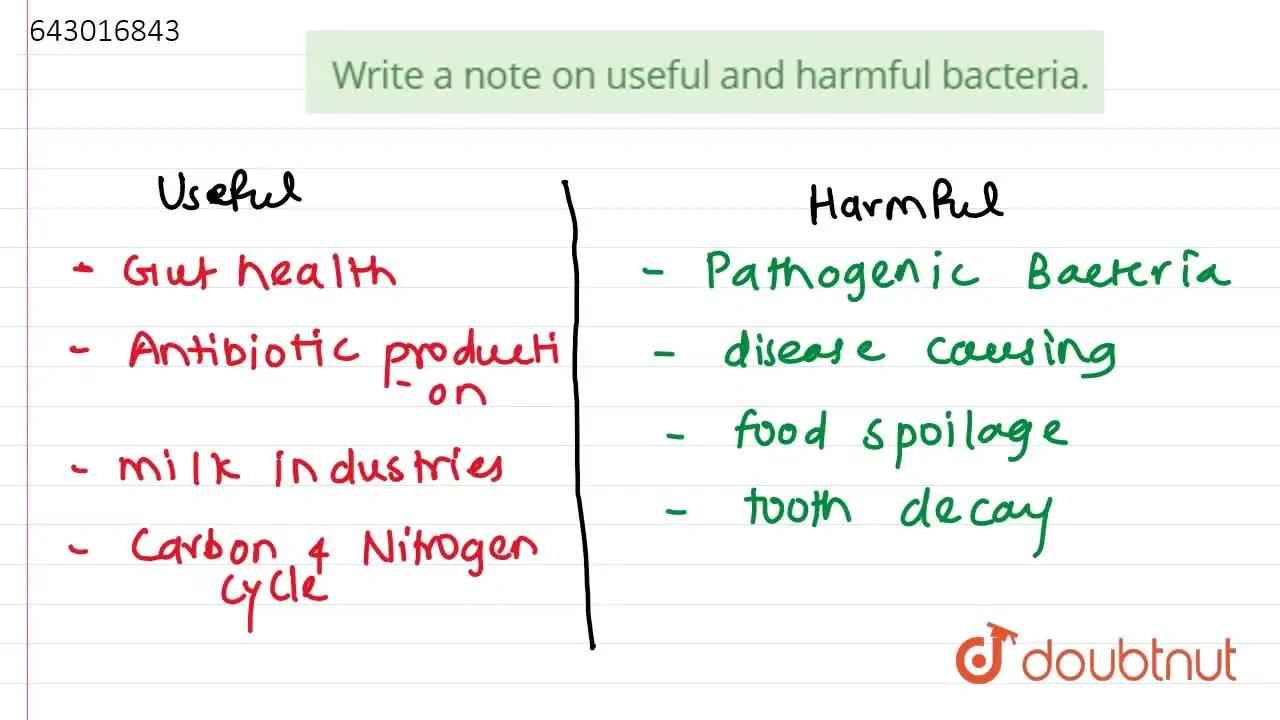 643016843
Write a note on useful and harmful bacteria.
Useful
- Gut health
- Antibiotic producti
- on
- milk industries
- Carbon & Nitrogen
cycle
Harmful
- Pathogenic Bacteria
- disease causing
- food spoilage
- tooth decay
doubtnut